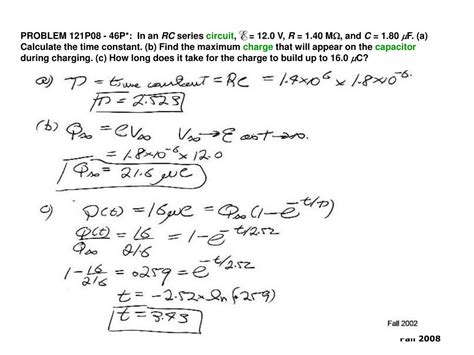 PROBLEM 121P08 - 46P*: In an RC series circuit, ℰ = 12.0 V, R = 1.40 MΩ, and C = 1.80 µF. (a)
Calculate the time constant. (b) Find the maximum charge that will appear on the capacitor
during charging. (c) How long does it take for the charge to build up to 16.0 µC?
a) τ = time constant = RC = 1.4×10⁶ × 1.8×10⁻⁶
τ = 2.52s
(b) Q∞ = CV∞ V∞ → ℰ as t → ∞.
= 1.8×10⁻⁶ × 12.0
Q∞ = 21.6 µC
c) Q(t) = 16µC = Q∞(1-e^(-t/τ))
Q(t)/Q∞ = 16/21.6 = 1-e^(-t/2.52)
1-16/21.6 = .0259 = e^(-t/2.52)
t = -2.52 × ln(.259)
t = 3.43
Fall 2002
Fall 2008